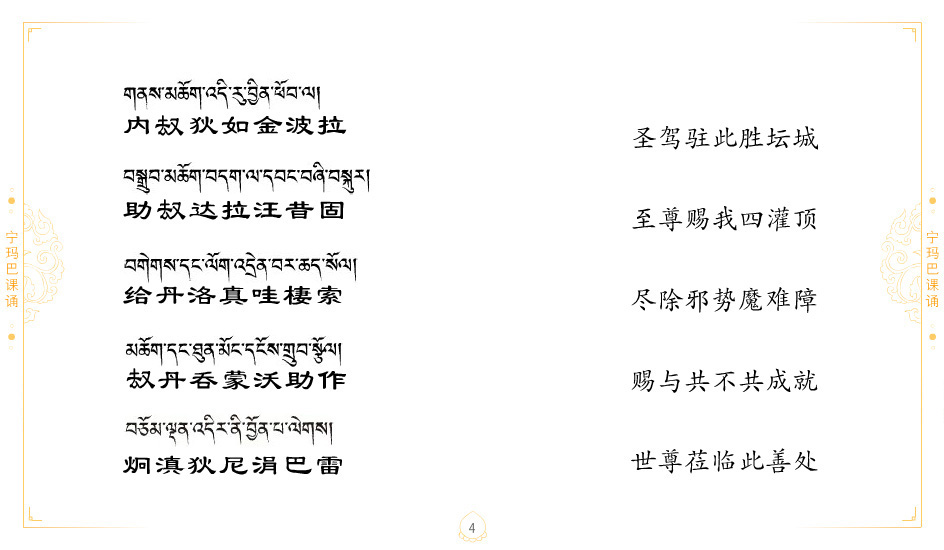 གནས་མཆོག་འདི་རུ་བྱིན་ཕོབ་ལ།
内敊狄如金波拉
བསྒྲུབ་མཆོག་བདག་ལ་དབང་བཞི་བསྐུར།
助敊达拉汪昔固
བགེགས་དང་ལོག་འདྲེན་བར་ཆད་སོལ།
给丹洛真哇棲索
མཆོག་དང་ཐུན་མོང་དངོས་གྲུབ་སྩོལ།
敊丹吞蒙沃助作
བཅོམ་ལྡན་འདིར་ནི་བྱོན་པ་ལེགས།
炯滇狄尼涓巴雷
圣驾驻此胜坛城
至尊赐我四灌顶
尽除邪势魔难障
赐与共不共成就
世尊莅临此善处
宁玛巴课诵
宁玛巴课诵
4